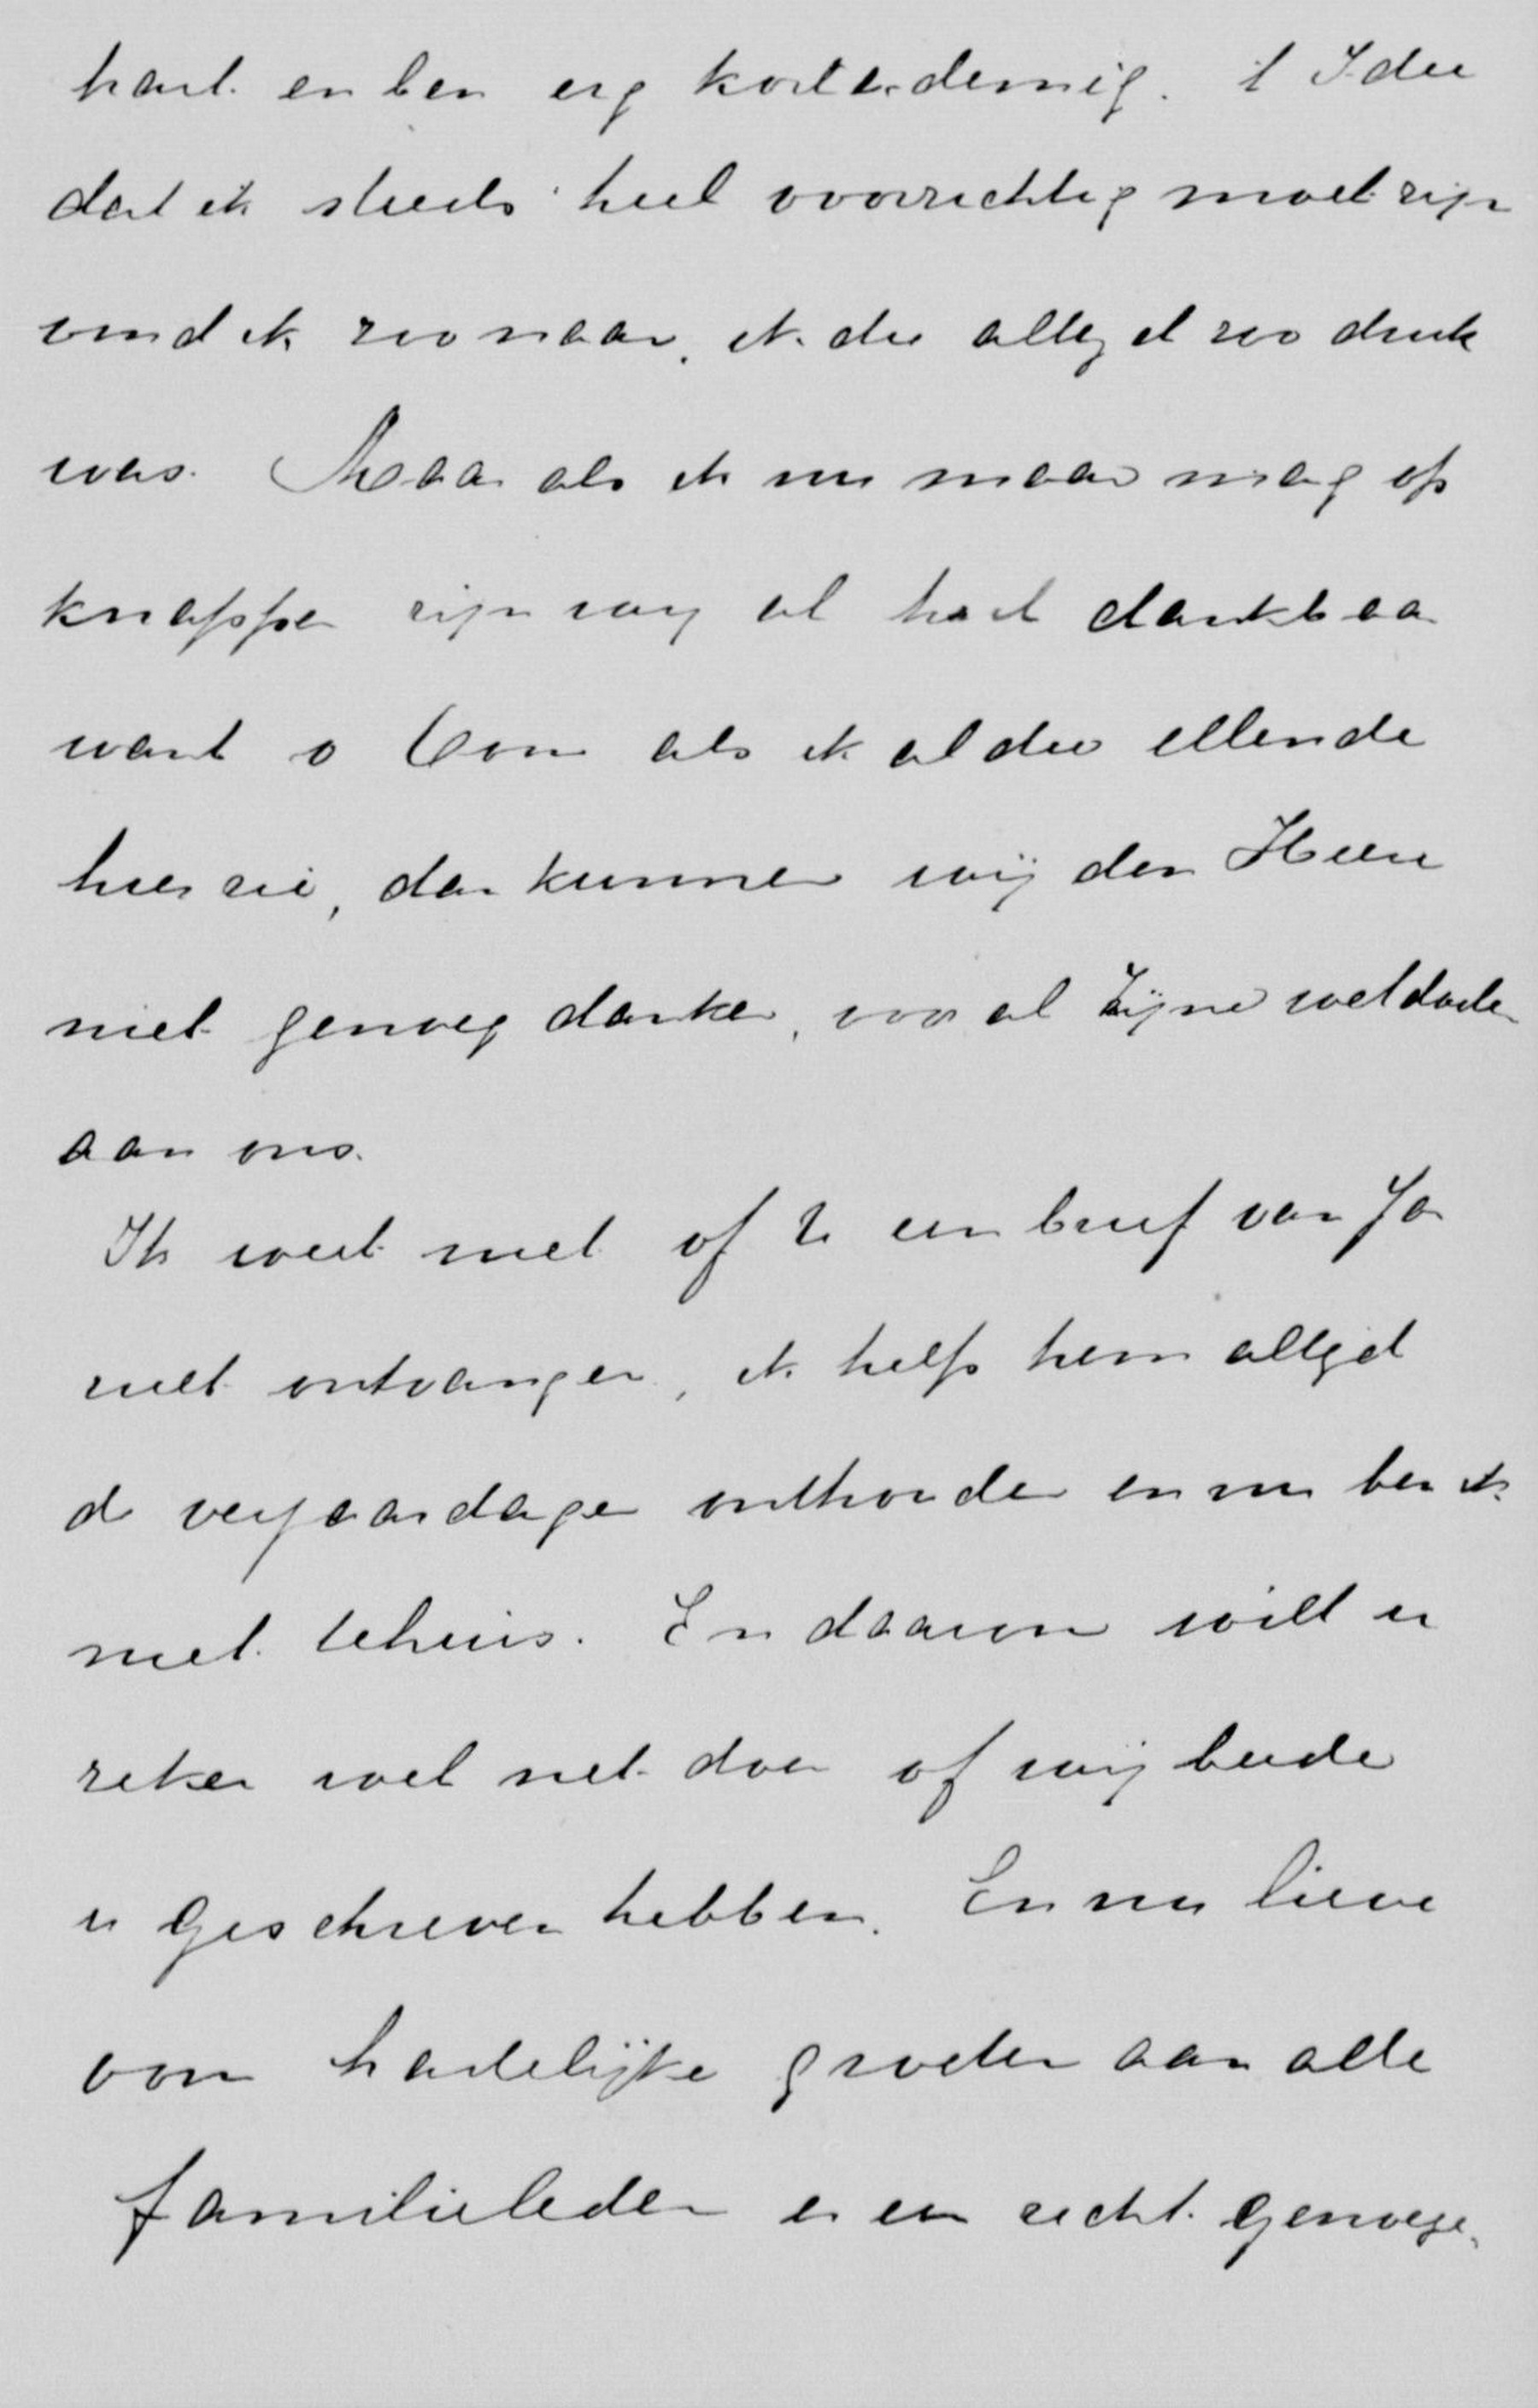 hart en ben erg kortademig. 't Idee
dat ik steeds heel voorzichtig moet zijn
vind ik zoo naar, ik die altijd zoo druk
was. Maar als ik nu maar mag op
knappen zijn wij al heel dankbaar
want o Oom als ik al die ellende
hier zie, dan kunnen wij den Heere
niet genoeg danken, voor al Zijne weldaden
aan ons.
Ik weet niet of U een brief van Jo
hebt ontvangen, ik help hem altijd
de verjaardagen onthouden en nu ben ik
niet tehuis. En daarom wilt u
zeker wel net doen of wij beide
u geschreven hebben. En nu lieve
oom hartelijke groeten aan alle
familieleden en een recht genoege